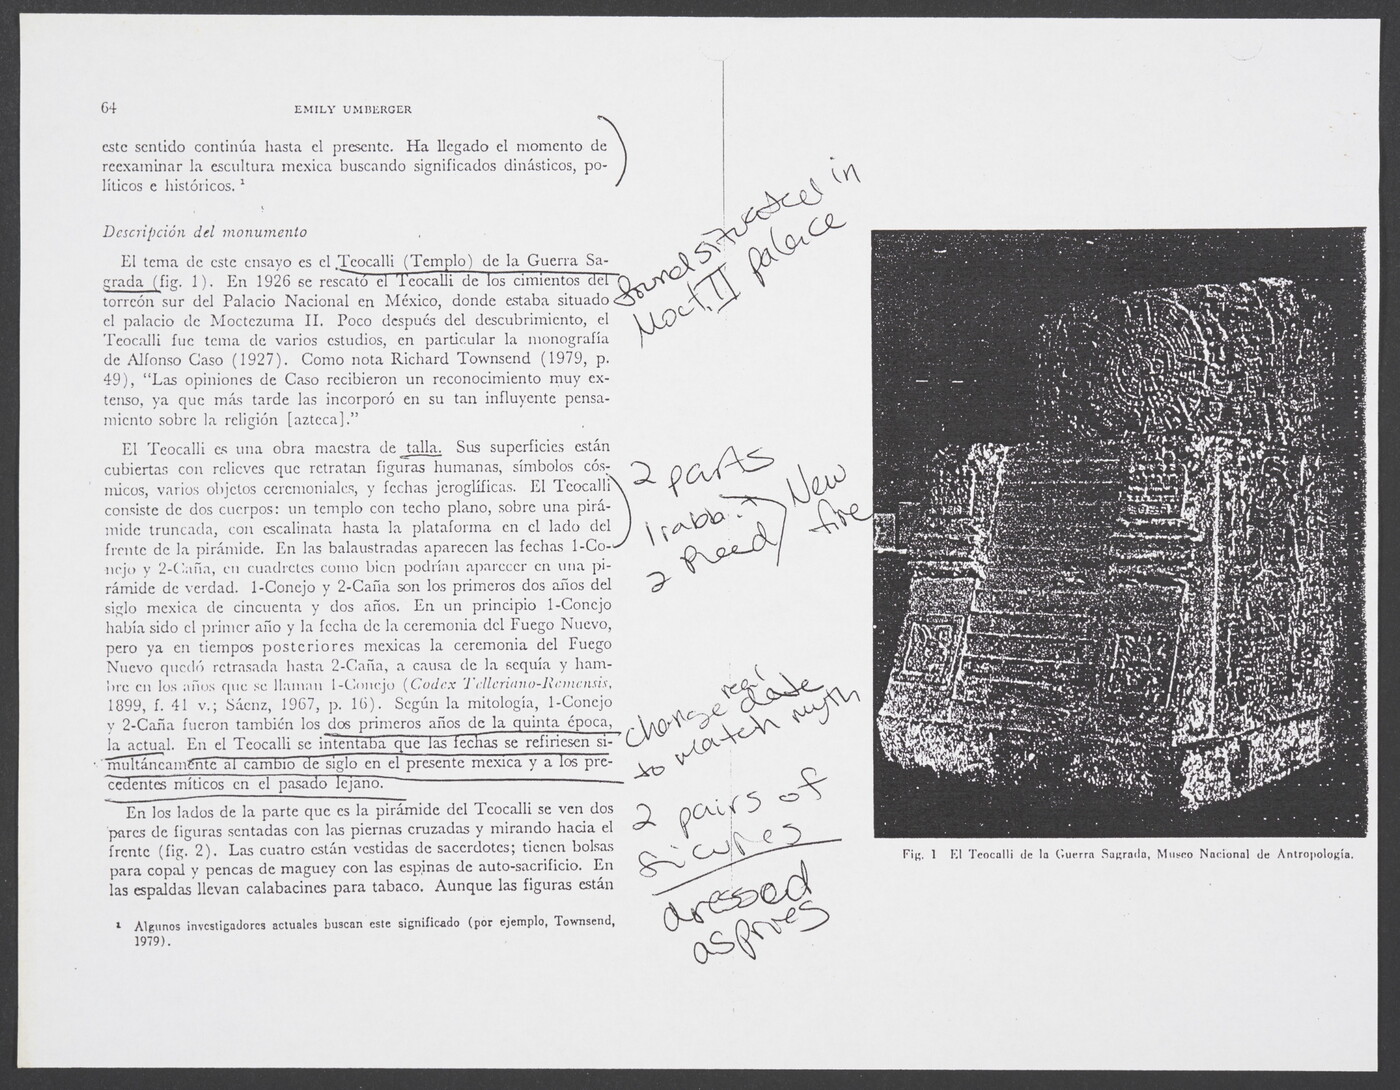 64
EMILY UMBERGER
este sentido continúa hasta el presente. Ha llegado el momento de
reexaminar la escultura mexica buscando significados dinásticos, po-
líticos e históricos. ¹
Descripción del monumento
El tema de este ensayo es el Teocalli (Templo) de la Guerra Sa-
grada (fig. 1). En 1926 se rescató el Teocalli de los cimientos del
torreón sur del Palacio Nacional en México, donde estaba situado
el palacio de Moctezuma II. Poco después del descubrimiento, el
Teocalli fue tema de varios estudios, en particular la monografía
de Alfonso Caso (1927). Como nota Richard Townsend (1979, p.
49), “Las opiniones de Caso recibieron un reconocimiento muy ex-
tenso, ya que más tarde las incorporó en su tan influyente pensa-
miento sobre la religión [azteca].”
El Teocalli es una obra maestra de talla. Sus superficies están
cubiertas con relieves que retratan figuras humanas, símbolos cós-
micos, varios objetos ceremoniales, y fechas jeroglíficas. El Teocalli
consiste de dos cuerpos: un templo con techo plano, sobre una pirá-
mide truncada, con escalinata hasta la plataforma en el lado del
frente de la pirámide. En las balaustradas aparecen las fechas 1-Co-
nejo y 2-Caña, en cuadretes como bien podrían aparecer en una pi-
rámide de verdad. 1-Conejo y 2-Caña son los primeros dos años del
siglo mexica de cincuenta y dos años. En un principio 1-Conejo
había sido el primer año y la fecha de la ceremonia del Fuego Nuevo,
pero ya en tiempos posteriores mexicas la ceremonia del Fuego
Nuevo quedó retrasada hasta 2-Caña, a causa de la sequía y ham-
bre en los años que se llaman 1-Conejo (Codex Telleriano-Remensis,
1899, f. 41 v.; Sáenz, 1967, p. 16). Según la mitología, 1-Conejo
y 2-Caña fueron también los dos primeros años de la quinta época,
la actual. En el Teocalli se intentaba que las fechas se refiriesen si-
multáneamente al cambio de siglo en el presente mexica y a los pre-
cedentes míticos en el pasado lejano.
En los lados de la parte que es la pirámide del Teocalli se ven dos
pares de figuras sentadas con las piernas cruzadas y mirando hacia el
frente (fig. 2). Las cuatro están vestidas de sacerdotes; tienen bolsas
para copal y pencas de maguey con las espinas de auto-sacrificio. En
las espaldas llevan calabacines para tabaco. Aunque las figuras están
¹ Algunos investigadores actuales buscan este significado (por ejemplo, Townsend,
1979).
found situated in
Moct. II palace
2 parts
1 rabbit
2 Reed
New
fire
change real date
to match myth
2 pairs of
figures
dressed
as pries
Fig. 1 El Teocalli de la Guerra Sagrada, Museo Nacional de Antropología.